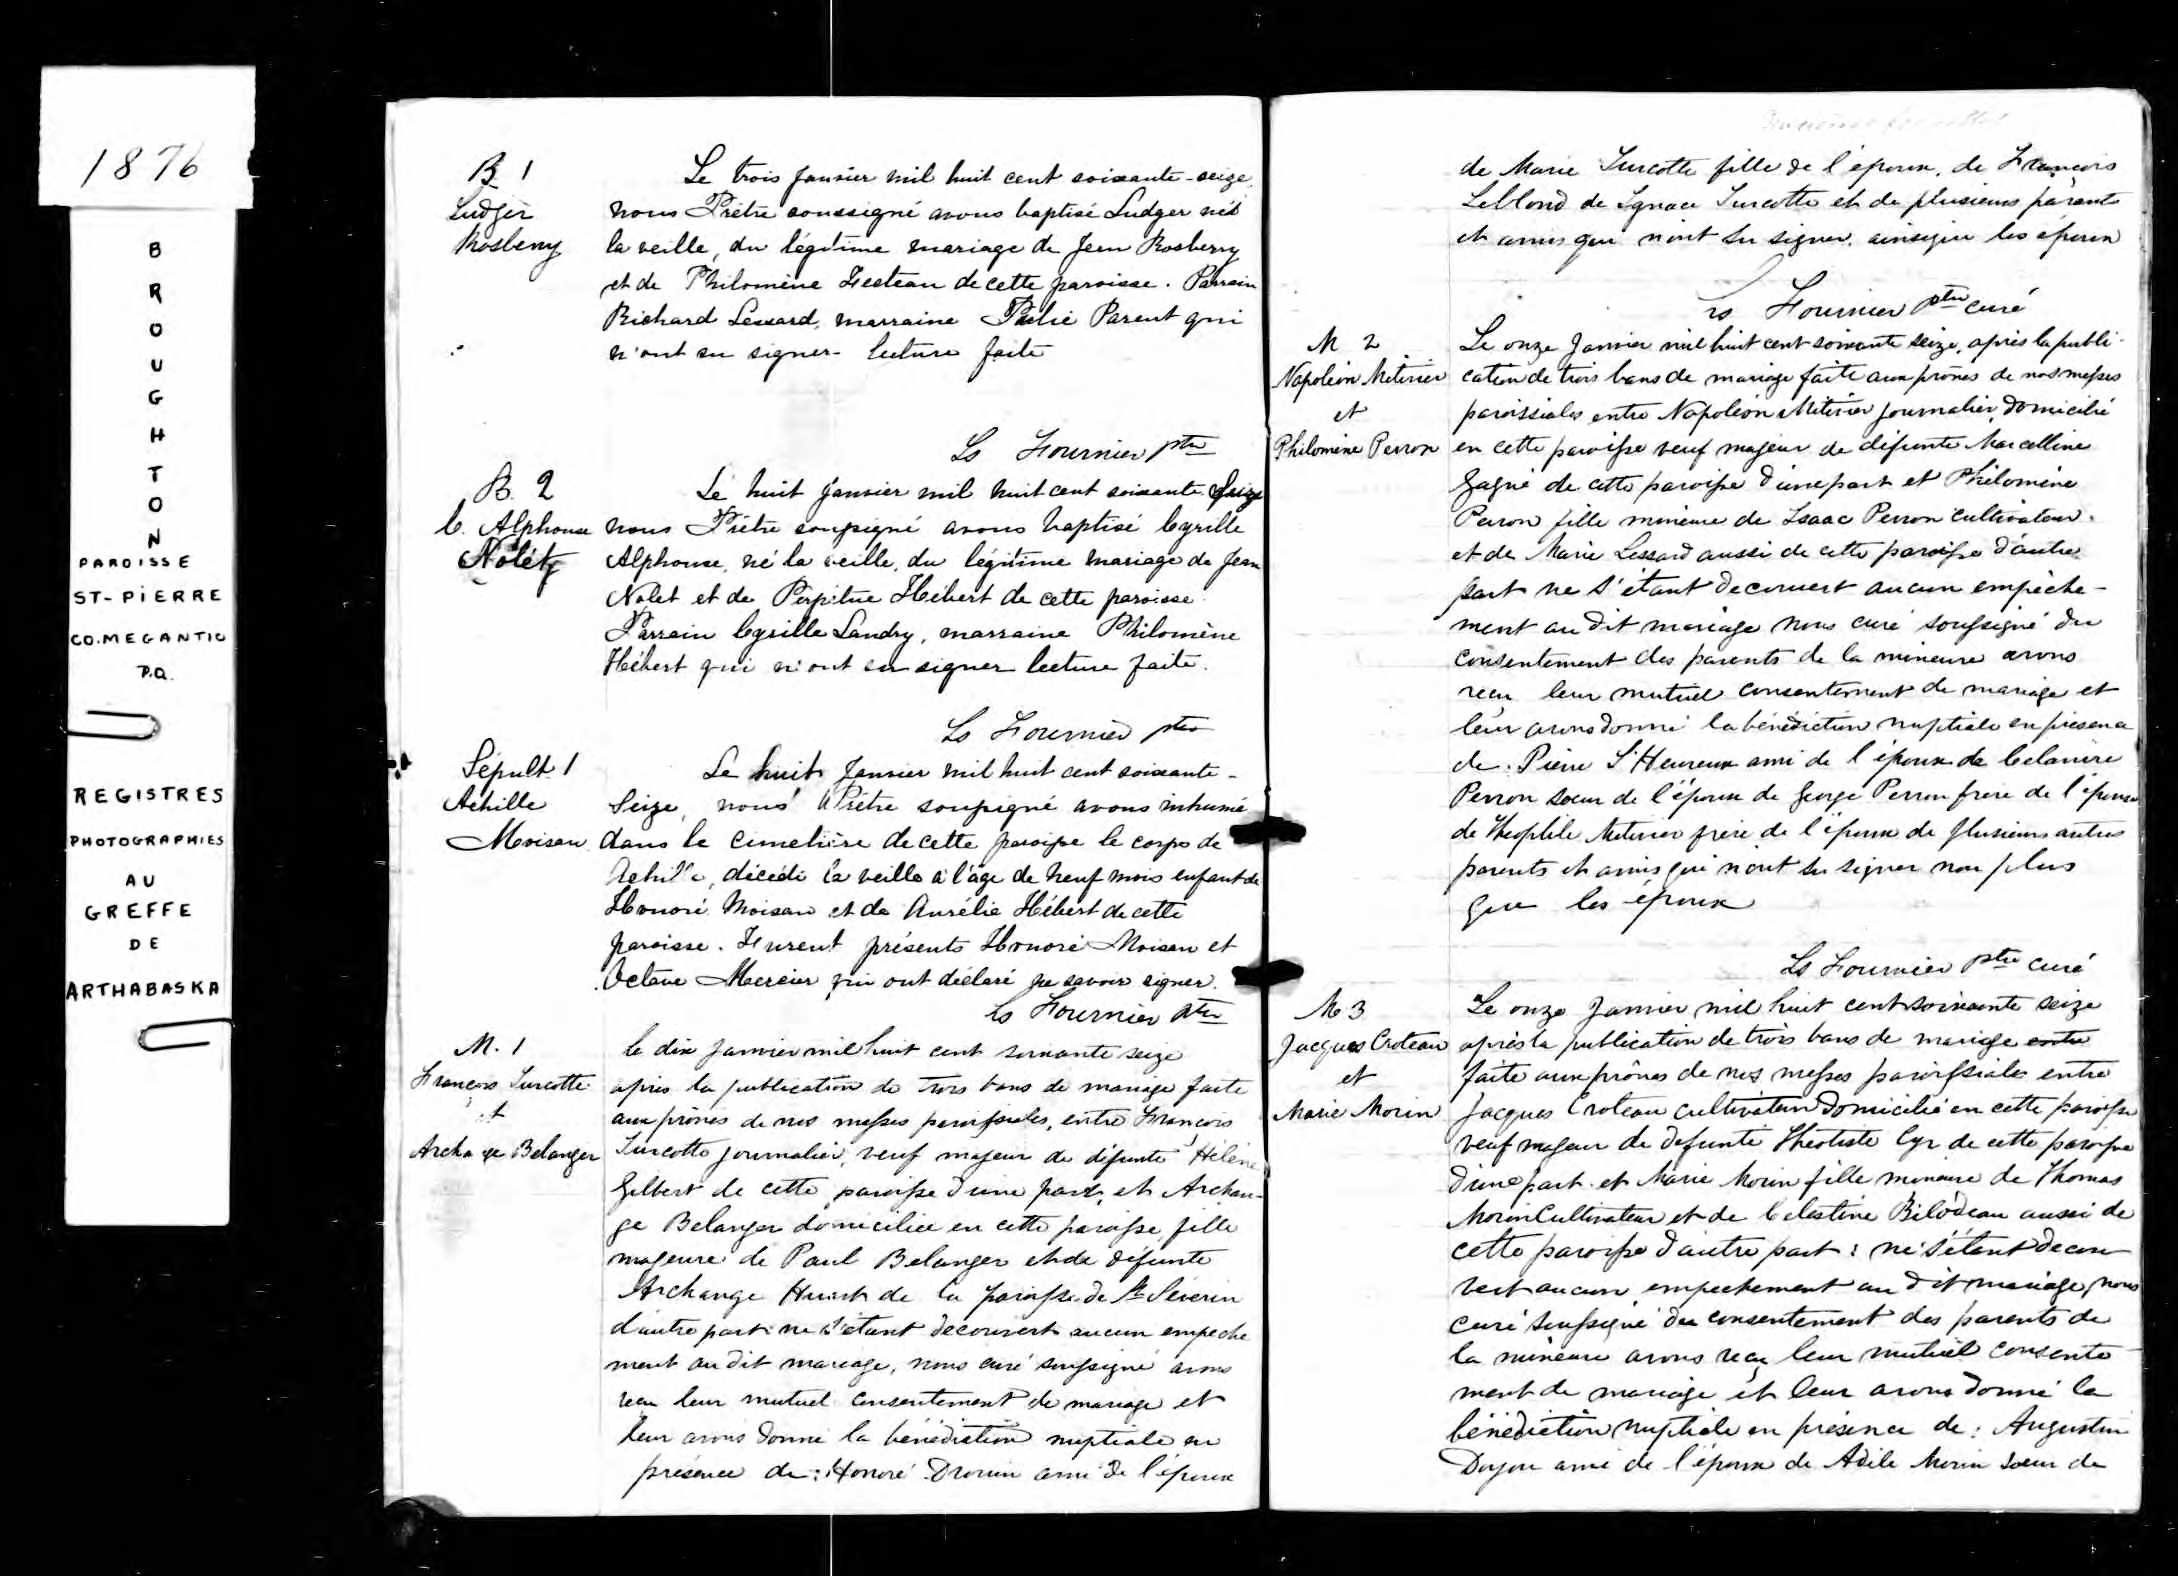 1876
B
R
O
U
G
H
T
O
N
PAROISSE
ST-PIERRE
CO. MEGANTIC
P.Q.
REGISTRES
PHOTOGRAPHIÉS
AU
GREFFE
DE
ARTHABASKA
B 1
Ludger
Rosberry
Le trois Janvier mil huit cent soixante-seize,
nous Prêtre soussigné avons baptisé Ludger né
la veille, du légitime mariage de Jean Rosberry
et de Philomène Fecteau de cette paroisse. Parrain
Richard Lessard, marraine Parent qui
n'ont su signer - lecture faite
Ls Fournier Ptre
B. 2
C. Alphonse
Nolet
Le huit Janvier mil huit cent soixante seize
nous Prêtre soussigné avons baptisé Cyrille
Alphonse, né la veille, du légitime mariage de Jean
Nolet et de Perpétue Hébert de cette paroisse.
Parrain Cyrille Landry, marraine Philomène
Hébert qui n'ont su signer lecture faite.
Ls Fournier ptre
Sépult. 1
Achille
Moisan
Le huit Janvier mil huit cent soixante-
Seize, nous Prêtre soussigné avons inhumé
dans le cimetière de cette paroisse le corps de
Achille, décédé la veille à l'âge de neuf mois enfant de
Honoré Moisan et de Aurélie Hébert de cette
paroisse. Furent présents Honoré Moisan et
Octave Mercier qui ont déclaré ne savoir signer.
Ls Fournier Ptre
M. 1
François Turcotte
et
Archange Belanger
le dix Janvier mil huit cent soixante seize
après la publication de trois bans de mariage faite
aux prônes de nos messes paroissiales, entre François
Turcotte journalier, veuf majeur de défunte Hélène
Gilbert de cette paroisse d'une part, et Archan-
ge Belanger domiciliée en cette paroisse, fille
majeure de Paul Belanger et de défunte
Archange de la paroisse de St Séverin
d'autre part ne s'étant decouvert aucun empeche
ment au dit mariage, nous curé soussigné avons
reçu leur mutuel consentement de mariage et
leur avons donné la bénédiction nuptiale en
présence de: Honoré Drouin ami de l'époux
de Marie Turcotte fille de l'époux, de François
Leblond de Ignace Turcotte et de plusieurs parents
et amis qui n'ont su signer, ainsique les époux
Ls Fournier Ptre curé
M 2
Napoléon Métivier
et
Philomène Perron
Le onze Janvier mil huit cent soixante seize, après la publi-
cation de trois bans de mariage faite aux prônes de nos messes
paroissiales entre Napoléon Métivier journalier domicilié
en cette paroisse veuf majeur de défunte Marcelline
Gagné de cette paroisse d'une part et Philomène
Perron fille mineure de Isaac Perron cultivateur
et de Marie Lessard aussi de cette paroisse d'autre
part ne s'étant decouvert aucun empêche-
ment au dit mariage nous curé soussigné du
consentement des parents de la mineure avons
reçu leur mutuel consentement de mariage et
leur avons donné la bénédiction nuptiale en présence
de: Pierre L'Heureux ami de l'époux de Celanire
Perron soeur de l'épouse de George Perron frère de l'épouse
de Theophile Metivier frère de l'époux de plusieurs autres
parents et amis qui n'ont su signer non plus
que les époux
Ls Fournier Ptre curé
M 3
Jacques Croteau
et
Marie Morin
Le onze Janvier mil huit cent soixante seize
après la publication de trois bans de mariage entre
faite aux prônes de nos messes paroissiales entre
Jacques Croteau cultivateur domicilié en cette paroisse
veuf majeur de défunte Théotiste Cyr de cette paroisse
d'une part et Marie Morin fille mineure de Thomas
Morin Cultivateur et de Celestine Bilodeau aussi de
cette paroisse d'autre part: ne s'étant decou
vert aucun empechement au dit mariage, nous
curé soussigné du consentement des parents de
la mineure avons reçu leur mutuel consente
ment de mariage et leur avons donné la
bénédiction nuptiale en présence de: Augustin
Doyon ami de l'époux de Adèle Morin soeur de